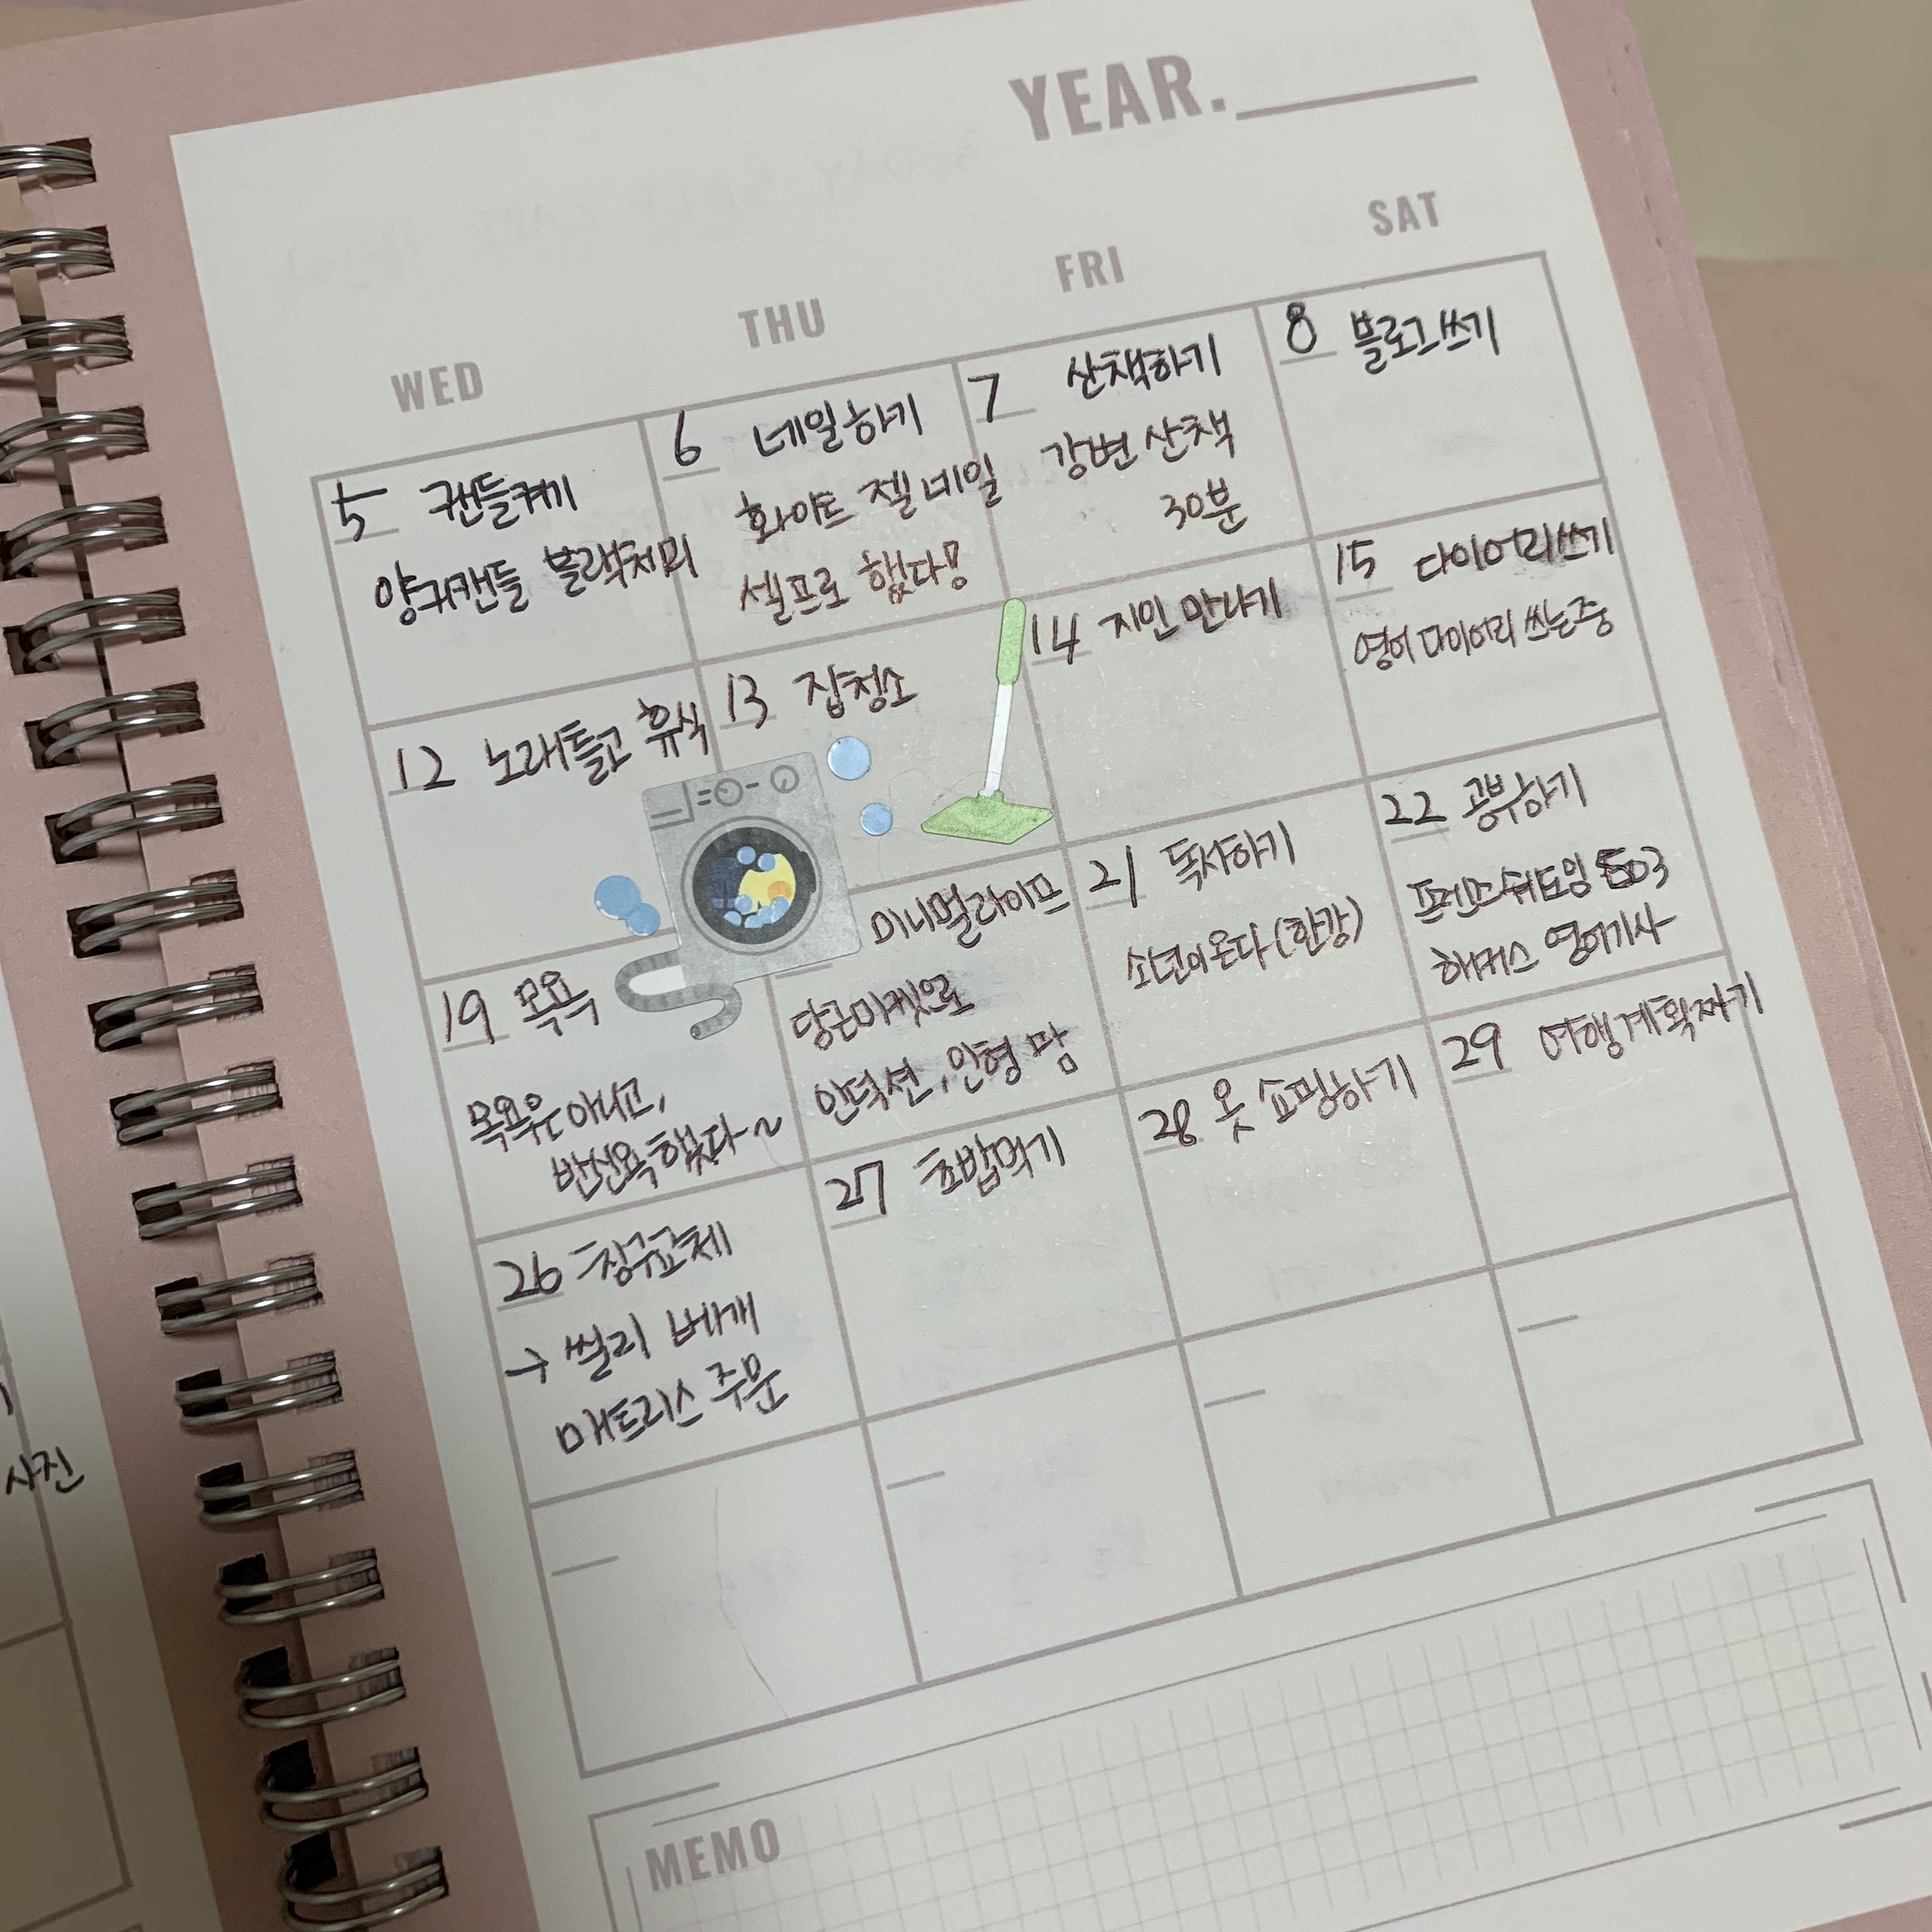 YEAR.
WED THU FRI SAT
5 캔들켜기
양키캔들 블랙체리
6 네일하기
화이트 젤네일
셀프로 했다!
7 산책하기
강변 산책
30분
8 블로그쓰기
12 노래듣고 휴식
13 집청소
14 지인 만나기
15 다이어리쓰기
영어 다이어리 쓰는중
19 목욕
목욕은 아니고,
반신욕 했다~
미니멀라이프
당근마켓으로
인덕션, 인형 팜
21 독서하기
소년이 온다 (한강)
22 공부하기
프렌즈 쉐도잉 503
해커스 영어기사
26 침구교체
→ 씰리 베개
매트리스 주문
27 초밥먹기
28 옷 쇼핑하기
29 여행계획짜기
사진
MEMO